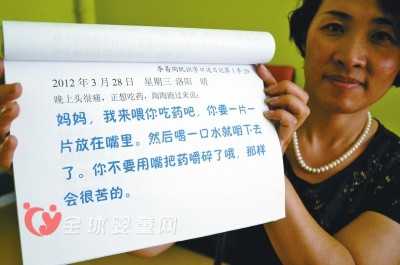 2012年3月28日 星期三 洛阳 晴
晚上头很痛,正想吃药,陶陶跑过来说:
妈妈,我来喂你吃药吧,你要一片一
片放在嘴里。然后喝一口水就咽下去
了。你不要用嘴把药嚼碎了哦,那样
会很苦的。
全球婴童网